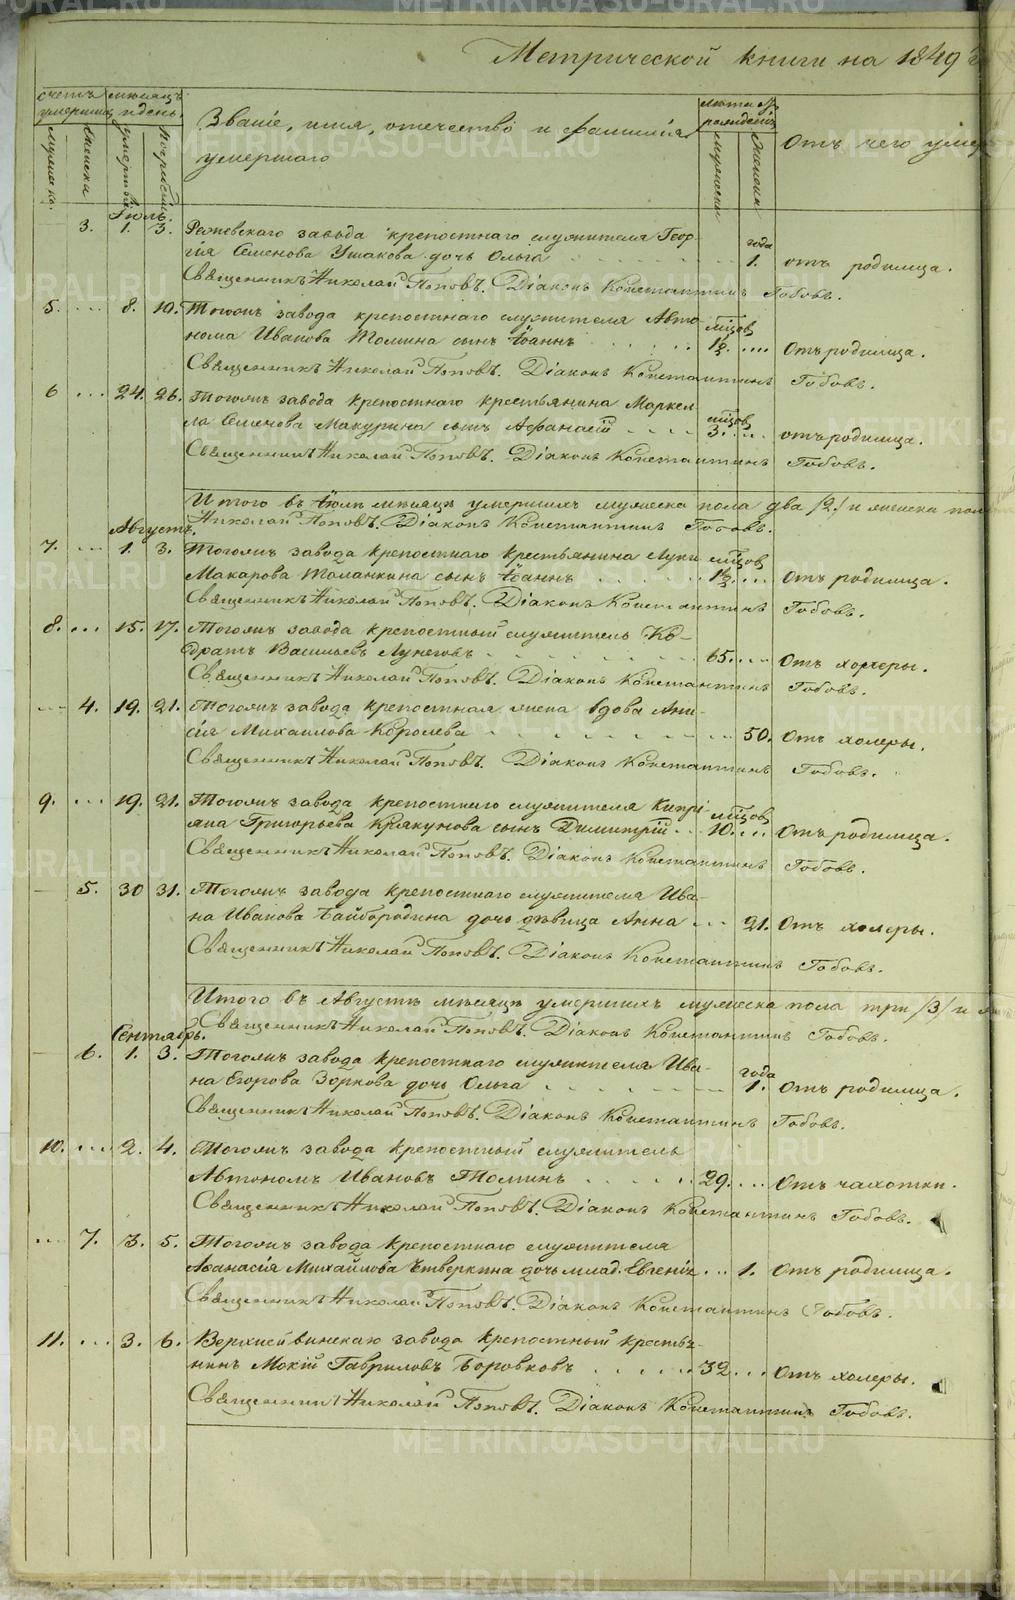 Метрической книги на 1849 г
счетъ умершихъ
мѣсяцъ и день
Званіе, имя, отечество и фамилія
умершаго
лѣта
Отъ чего умер
мужеска.
женска
умертвія
погребенія
мужескаго
женска
Іюль.
3. 1. 3. Режевскаго завода крепостнаго служителя Геор-
гія Семенова Ушакова дочь Ольга года 1. отъ родимца.
Священникъ Николай Поповъ. Діаконъ Константинъ Гобовъ.
5. ... 8. 10. Тогожъ завода крепостнаго служителя Авто-
нома Иванова Томина сынъ Іоаннъ мѣсцов 1½. .... Отъ родимца.
Священникъ Николай Поповъ. Діаконъ Константинъ Гобовъ.
6 ... 24. 26. Тогожъ завода крепостнаго крестьянина Маркел-
ла Семенова Макурина сынъ Афанасій мѣсцов 3. .... отъ родимца.
Священникъ Николай Поповъ. Діаконъ Константинъ Гобовъ.
Итого въ Іюлѣ мѣсяцѣ умершихъ мужеска пола два /2/ и женска пол
Николай Поповъ. Діаконъ Константинъ Гобовъ.
Августъ.
7. ... 1. 3. Тогожъ завода крепостнаго крестьянина Луки
Макарова Таланкина сынъ Іоаннъ мѣсцов 1½. ... Отъ родимца.
Священникъ Николай Поповъ. Діаконъ Константинъ Гобовъ.
8. ... 15. 17. Тогожъ завода крепостный служитель Ко-
дратъ Васильевъ Лунеговъ 65. ... Отъ холеры.
Священникъ Николай Поповъ. Діаконъ Константинъ Гобовъ.
... 4. 19. 21. Тогожъ завода крепостная жена вдова Ани-
сія Михаилова Королева 50. Отъ холеры.
Священникъ Николай Поповъ. Діаконъ Константинъ Гобовъ.
9. ... 19. 21. Тогожъ завода крепостнаго служителя Кипрі-
яна Григорьева Крякунова сынъ Димитрій мѣсцов 10. ... Отъ родимца.
Священникъ Николай Поповъ. Діаконъ Константинъ Гобовъ.
5. 30 31. Тогожъ завода крепостнаго служителя Ива-
на Иванова Байбородина дочь дѣвица Анна 21. Отъ холеры.
Священникъ Николай Поповъ. Діаконъ Константинъ Гобовъ.
Итого въ Августѣ мѣсяцѣ умершихъ мужеска пола три /3/ и
Священникъ Николай Поповъ. Діаконъ Константинъ Гобовъ.
Сентябрь.
6. 1. 3. Тогожъ завода крепостнаго служителя Ива-
на Егорова Зоркова дочь Ольга года 1. Отъ родимца.
Священникъ Николай Поповъ. Діаконъ Константинъ Гобовъ.
10. ... 2. 4. Тогожъ завода крепостный служитель
Автономъ Ивановъ Томинъ 29. ... Отъ чахотки.
Священникъ Николай Поповъ. Діаконъ Константинъ Гобовъ.
... 7. 3. 5. Тогожъ завода крепостнаго служителя
Аѳанасія Михайлова Четверкина дочь млад. Евгенія ... 1. Отъ родимца.
Священникъ Николай Поповъ. Діаконъ Константинъ Гобовъ.
11. ... 3. 6. Верхнейвинскаго завода крепостный крестья-
нинъ Мокій Гавриловъ Боровковъ 32. ... Отъ холеры.
Священникъ Николай Поповъ. Діаконъ Константинъ Гобовъ.
METRIKI.GASO-URAL.RU